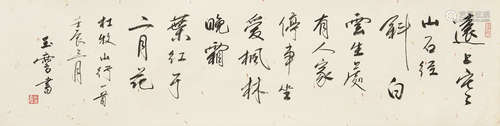 遠上寒
山石徑
斜白
雲生處
有人家
停車坐
愛楓林
晚霜
葉紅于
二月花
杜牧山行一首
壬辰三月
玉書